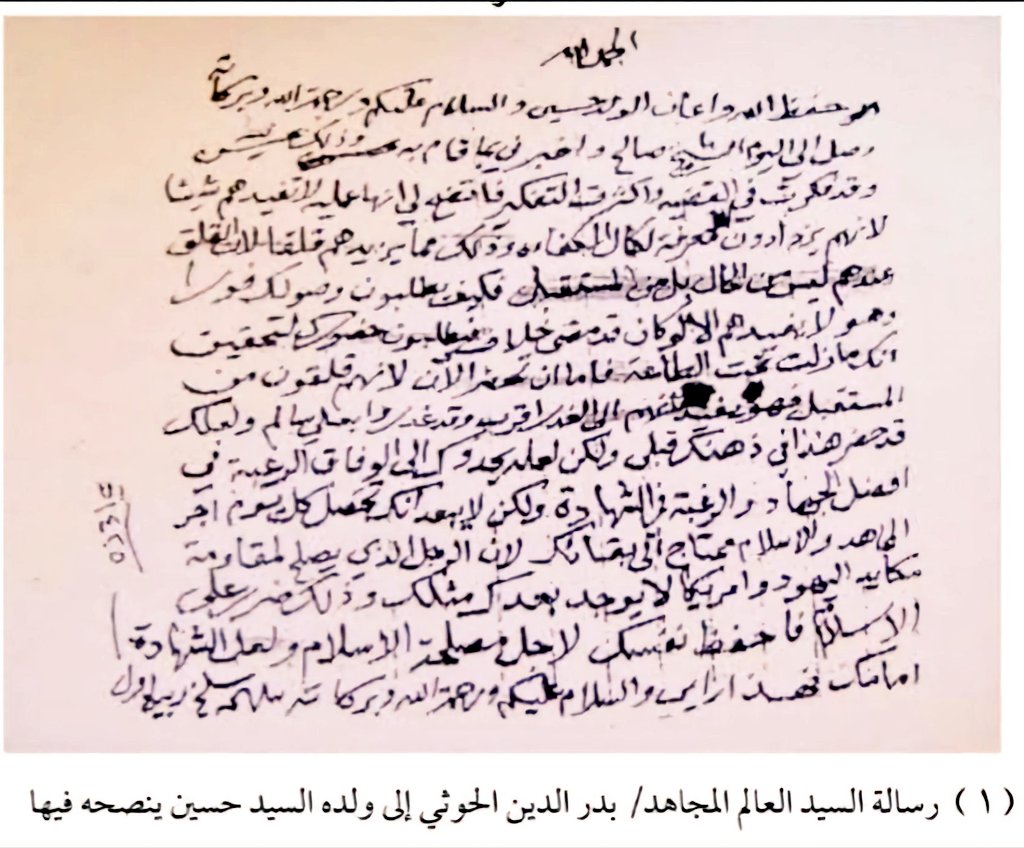 الحمد لله
حفظ الله واعان الولد حسين والسلام عليكم ورحمة الله وبركاته
وصل الي اليوم الشيخ صالح واخبرني بما قام به وذلك
وقد فكرت في القضيه واكثرت التفكير فاتضح لي انها عمليه لا تفيدهم شيئا
لانهم يزدادون معرفة لكمال الكفاءه وذلك مما يزيدهم قلقا لان القلق
عندهم ليس من الحال بل من المستقبل فكيف يطلبون وصولك فورا
وهو لا يفيدهم الا لو كان قد مضى خلاف فيطلبون حضورك لتحقيق
انك مازلت تحت الطاعة فاما ان تحضر الآن لانهم قلقون من
المستقبل فهو الى الغدر اقرب وقد غدروا بعلي سالم ولعلك
قد حضر هذا في ذهنك قبلي ولكن لعله يحدوك الى الوفاق الرغبة في
افضل الجهاد والرغبة في الشهادة ولكن لا يبعد انك تحصل كل يوم اجر
المجاهد والاسلام محتاج الى بقائك لان الرجل الذي يصلح لمقاومة
مكايد اليهود وامريكا لا يوجد بعدك مثلك وذلك ضرر على
الاسلام فاحفظ نفسك لاجل مصلحة الاسلام ولعل الشهادة
امامك فهذا رايي والسلام عليكم ورحمة الله وبركاته سلخ ربيع اول
(١) رسالة السيد العالم المجاهد/ بدر الدين الحوثي إلى ولده السيد حسين ينصحه فيها